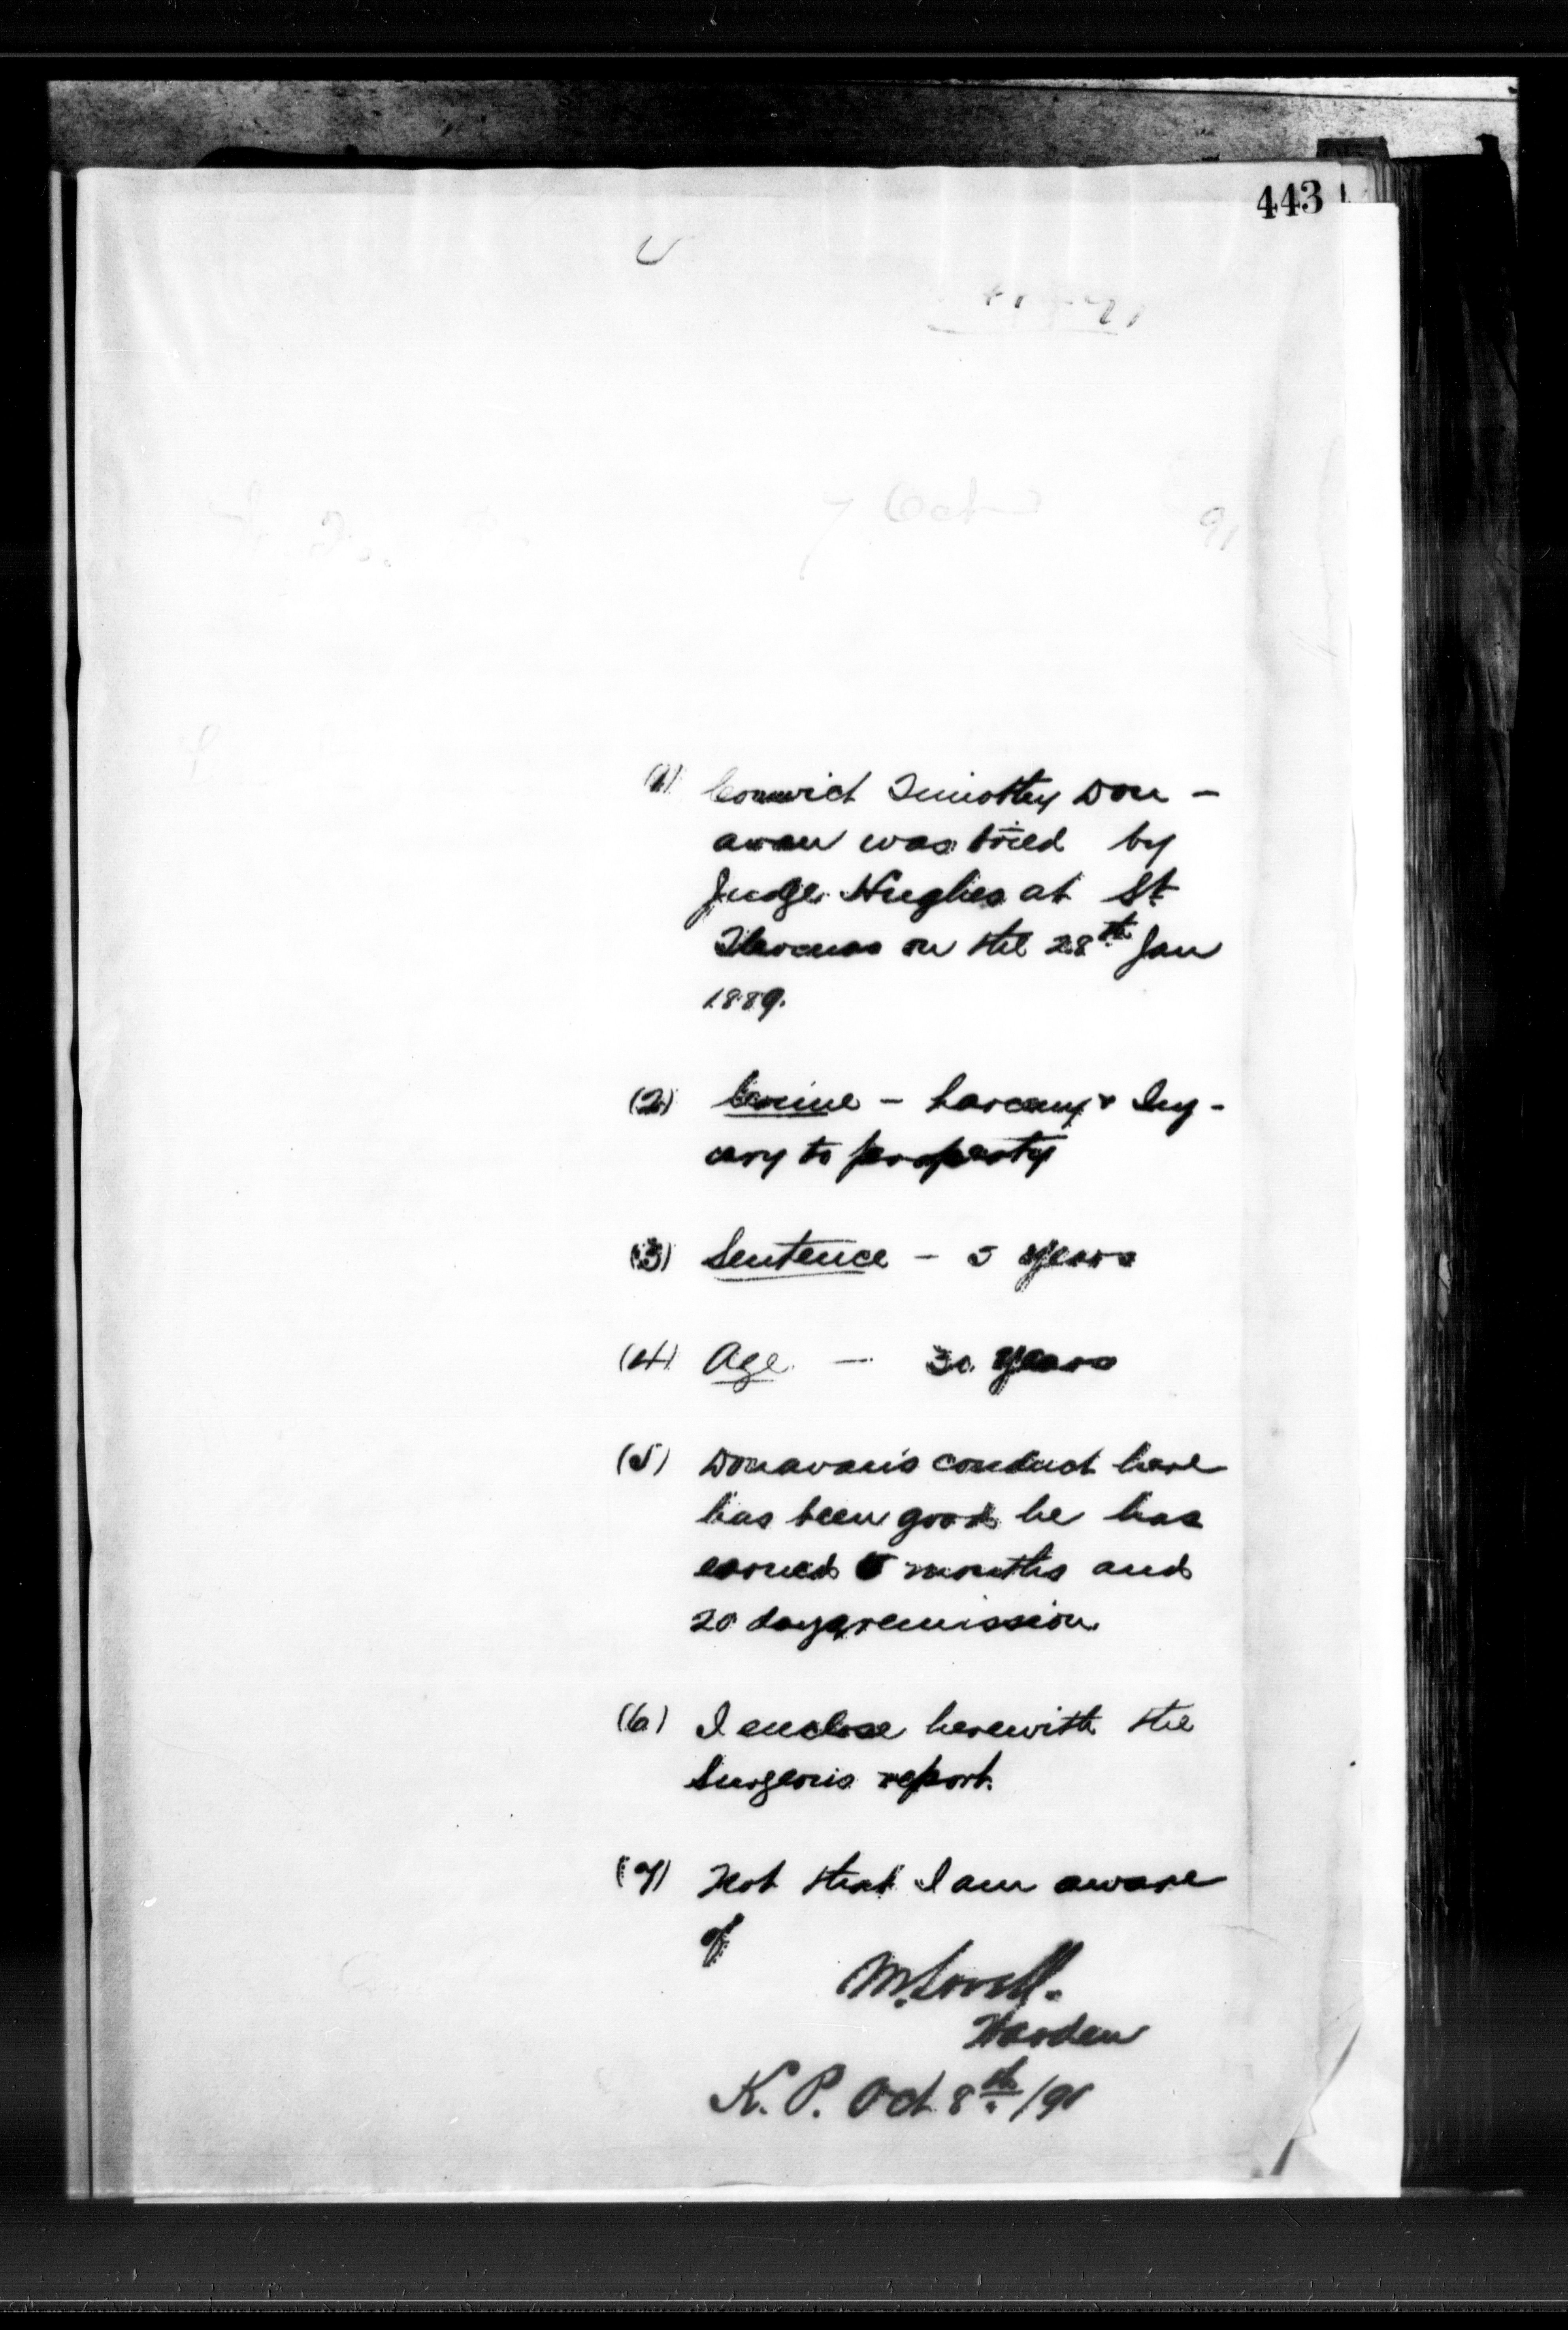 443
7 Oct
91
(1) Convict Timothy Don -
avan was tried by
Judge Hughes at St
Thomas on the 28th Jan
1889.
(2) Crime - Larceny & Inj -
ury to property
(3) Sentence - 5 years
(4) Age - 30 years
(5) Donavan's conduct here
has been good he has
earned months and
20 days remission.
(6) I enclose herewith the
Surgeon's report.
(7) Not that I am aware
of
M. Lavell.
Warden
K. P. Oct 8th /91